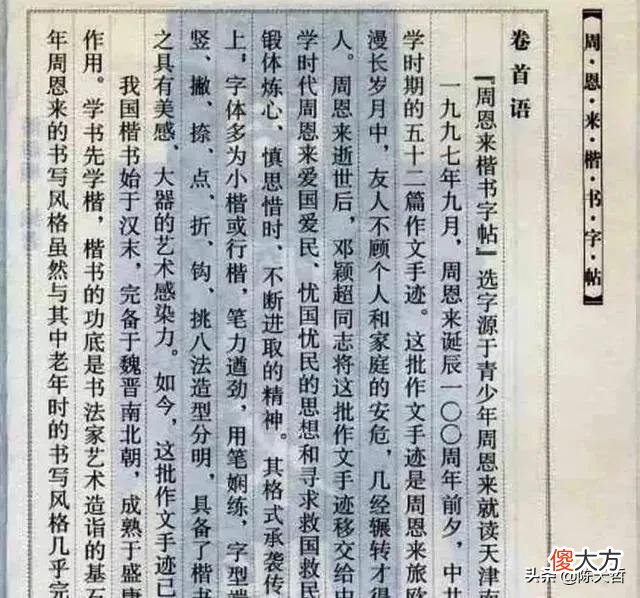 周·恩·来·楷·书·字·帖
卷首语
『周恩来楷书字帖』选字源于青少年周恩来就读天津南
一九九七年九月，周恩来诞辰一〇〇周年前夕，中共
学时期的五十二篇作文手迹。这批作文手迹是周恩来旅欧
漫长岁月中，友人不顾个人和家庭的安危，几经辗转才得
人。周恩来逝世后，邓颖超同志将这批作文手迹移交给中
学时代周恩来爱国爱民、忧国忧民的思想和寻求救国救民
锻体炼心、慎思惜时、不断进取的精神。其格式承袭传
上，字体多为小楷或行楷，笔力遒劲，用笔娴练，字型端
竖、撇、捺、点、折、钩、挑八法造型分明，具备了楷书
之具有美感、大器的艺术感染力。如今，这批作文手迹已
我国楷书始于汉末，完备于魏晋南北朝，成熟于盛唐
作用。学书先学楷，楷书的功底是书法家艺术造诣的基石
年周恩来的书写风格虽然与其中老年时的书写风格几乎完
傻大方
头条 @陈大哲